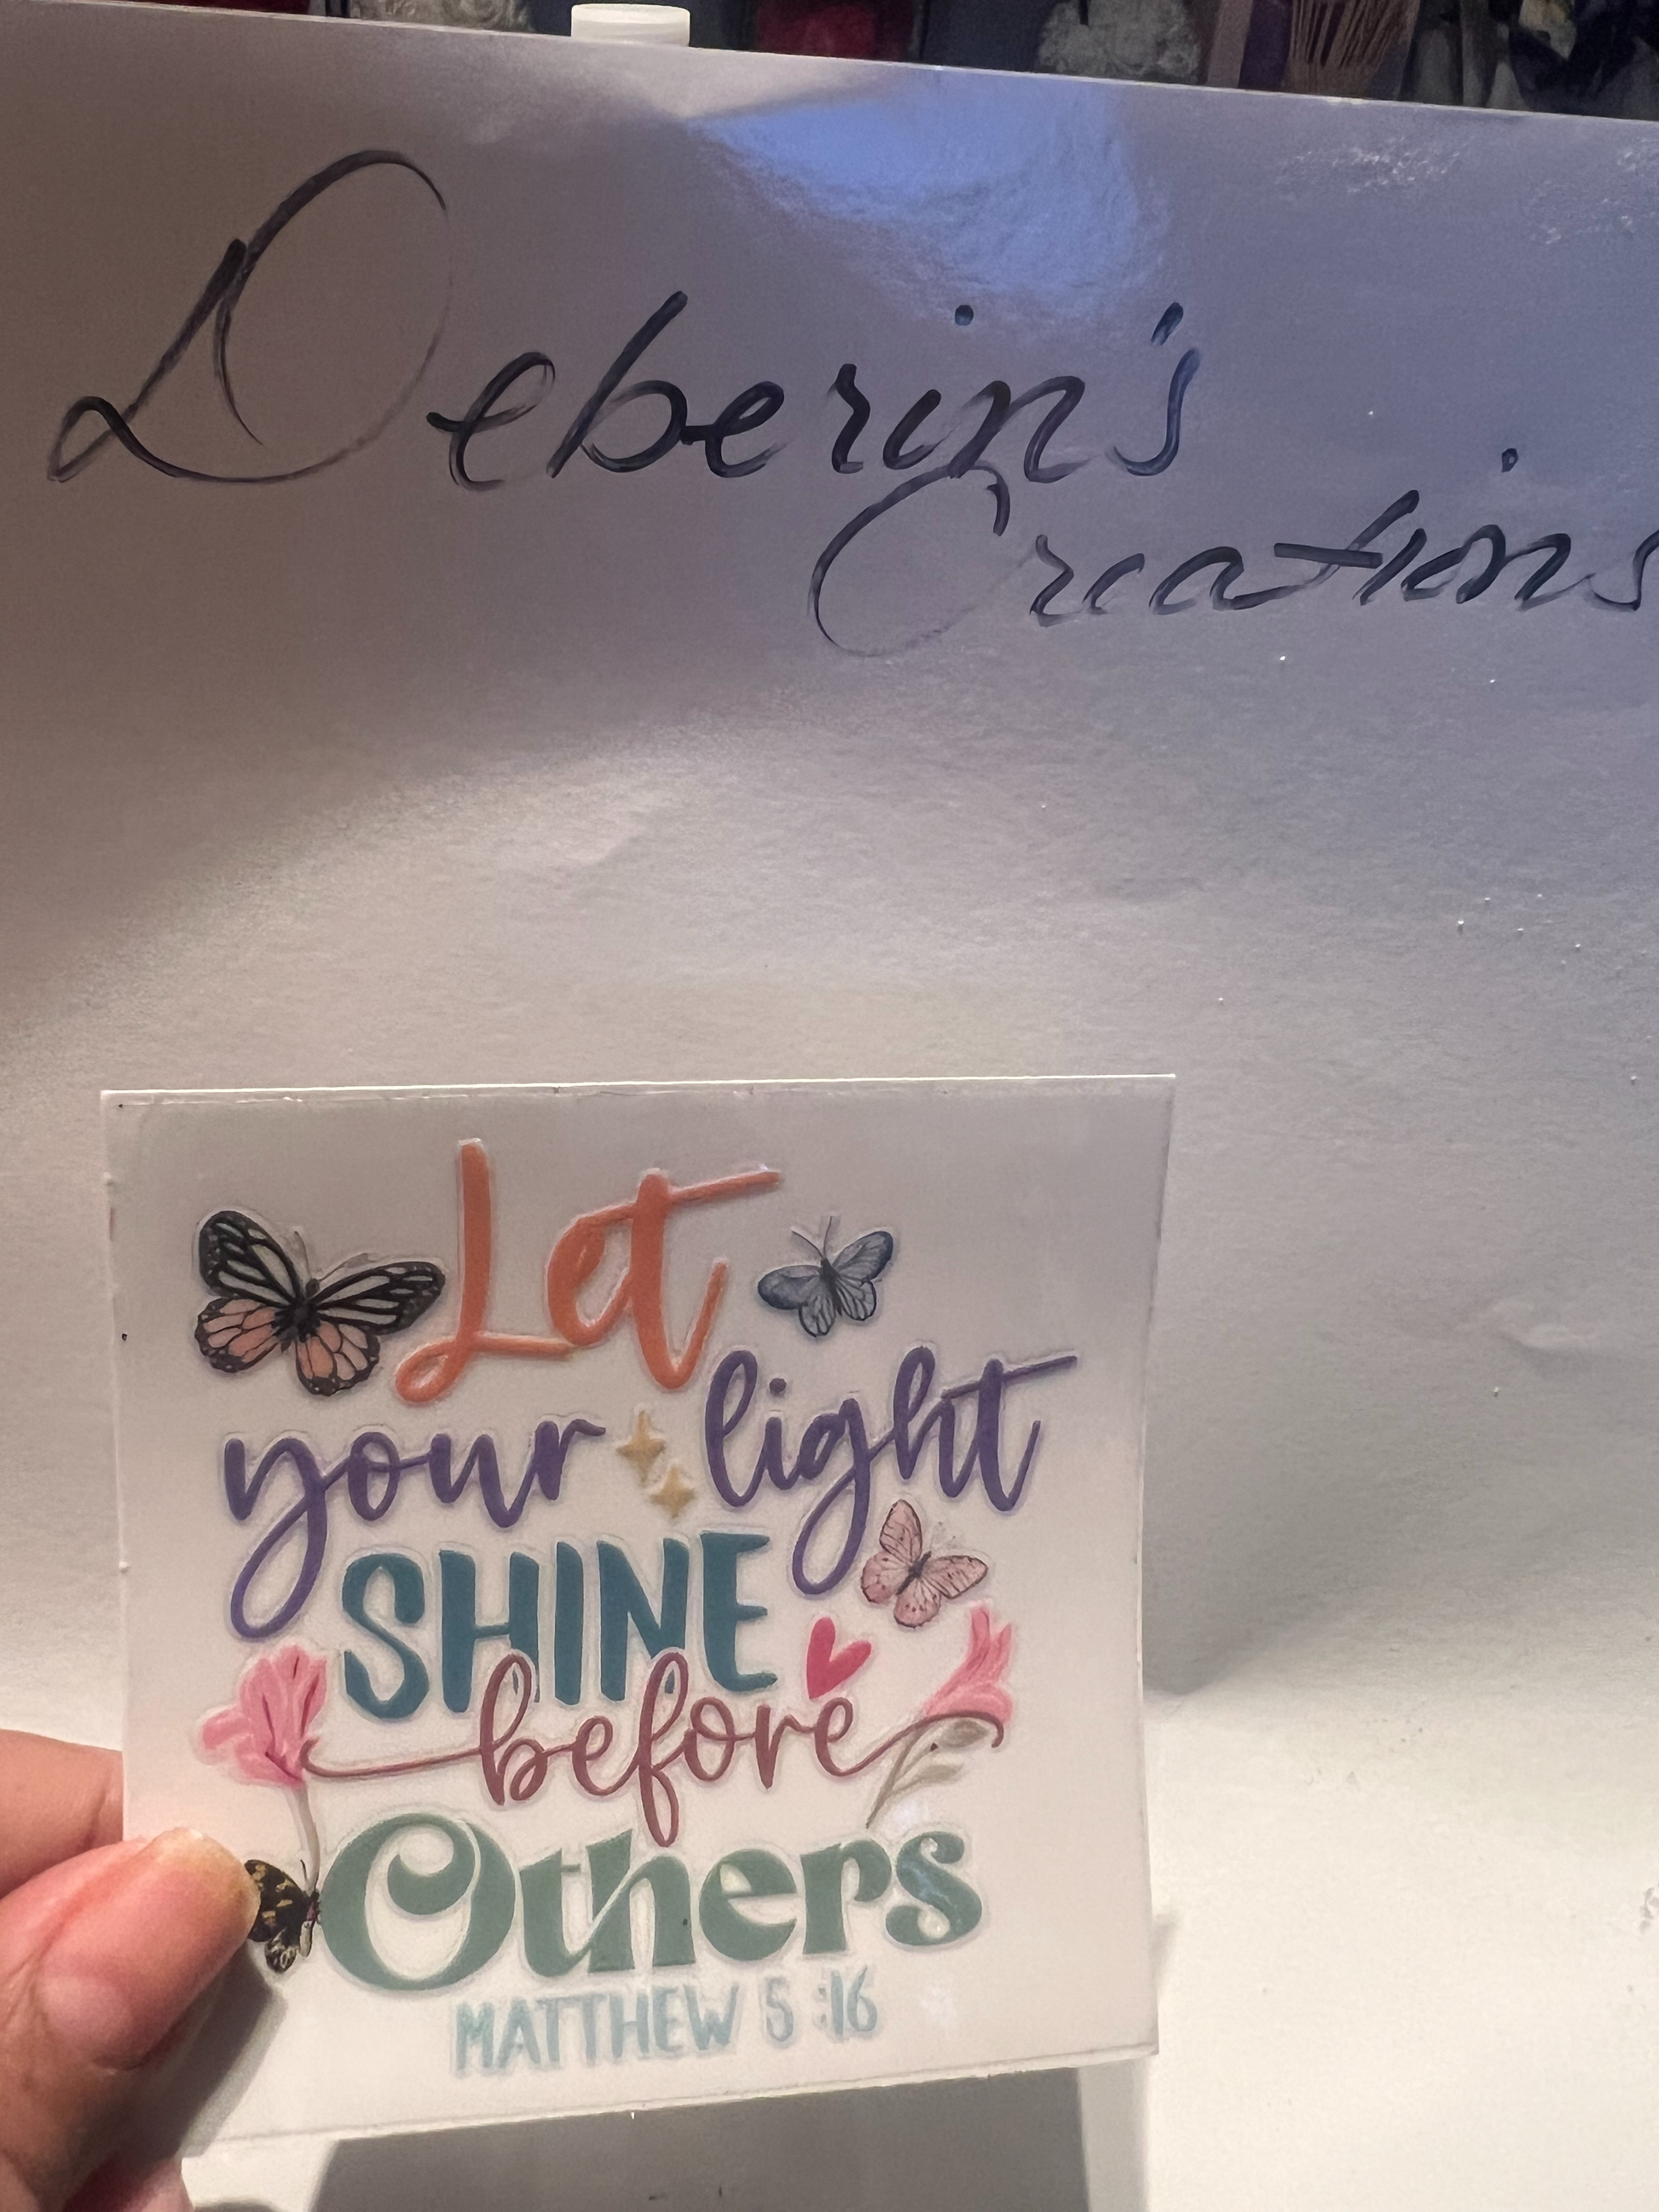 Deberin's
Creations
Let
your light
SHINE
before
Others
MATTHEW 5:16